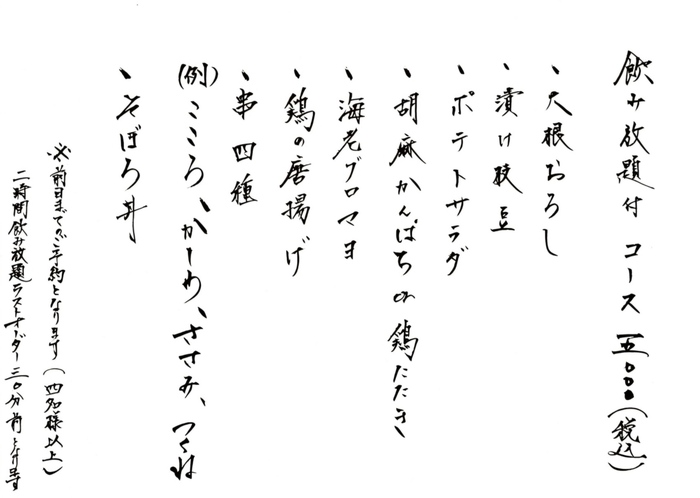 飲み放題付 コース 五〇〇〇(税込)
・大根おろし
・漬け枝豆
・ポテトサラダ
・胡麻かんぱち or 鶏たたき
・海老ブロマヨ
・鶏の唐揚げ
・串四種
(例)こころ、かわ、ささみ、つくね
・そぼろ丼
※前日までのご予約となります(四名様以上)
二時間飲み放題ラストオーダー三〇分前となります